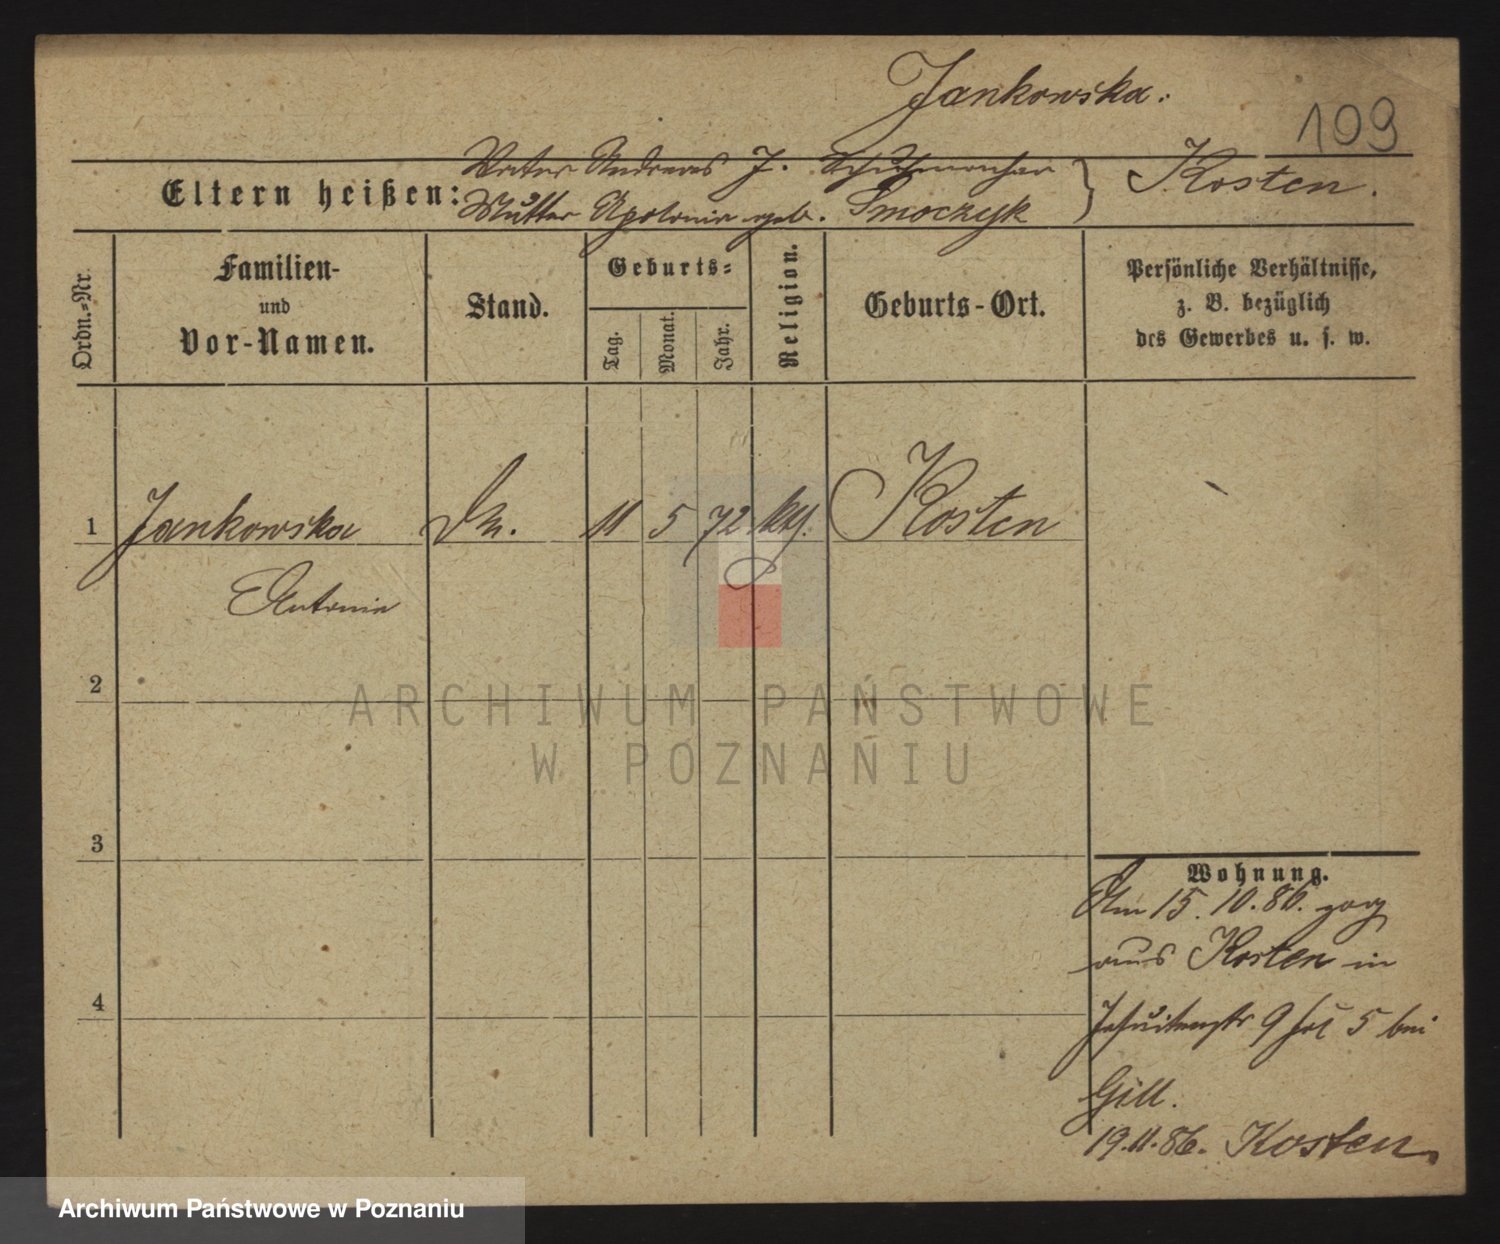 Jankowska.
109
Eltern heißen:
Vater Andreas J. Schuhmacher } Kosten.
Mutter Apolonia geb. Smoczyk
Ordn.-Nr.
Familien-
und
Vor-Namen.
Stand.
Geburts-
Tag.
Monat.
Jahr.
Religion.
Geburts-Ort.
Persönliche Verhältnisse,
z. B. bezüglich
des Gewerbes u. s. w.
1 Jankowska 11 5 72 kth. Kosten
Antonia
2
3
4
Wohnung.
Am 15. 10. 86. zog
aus Kosten in
Jesuitenstr 9 5 bei
Gill.
19.11.86. Kosten.
ARCHIWUM PAŃSTWOWE
W POZNANIU
Archiwum Państwowe w Poznaniu